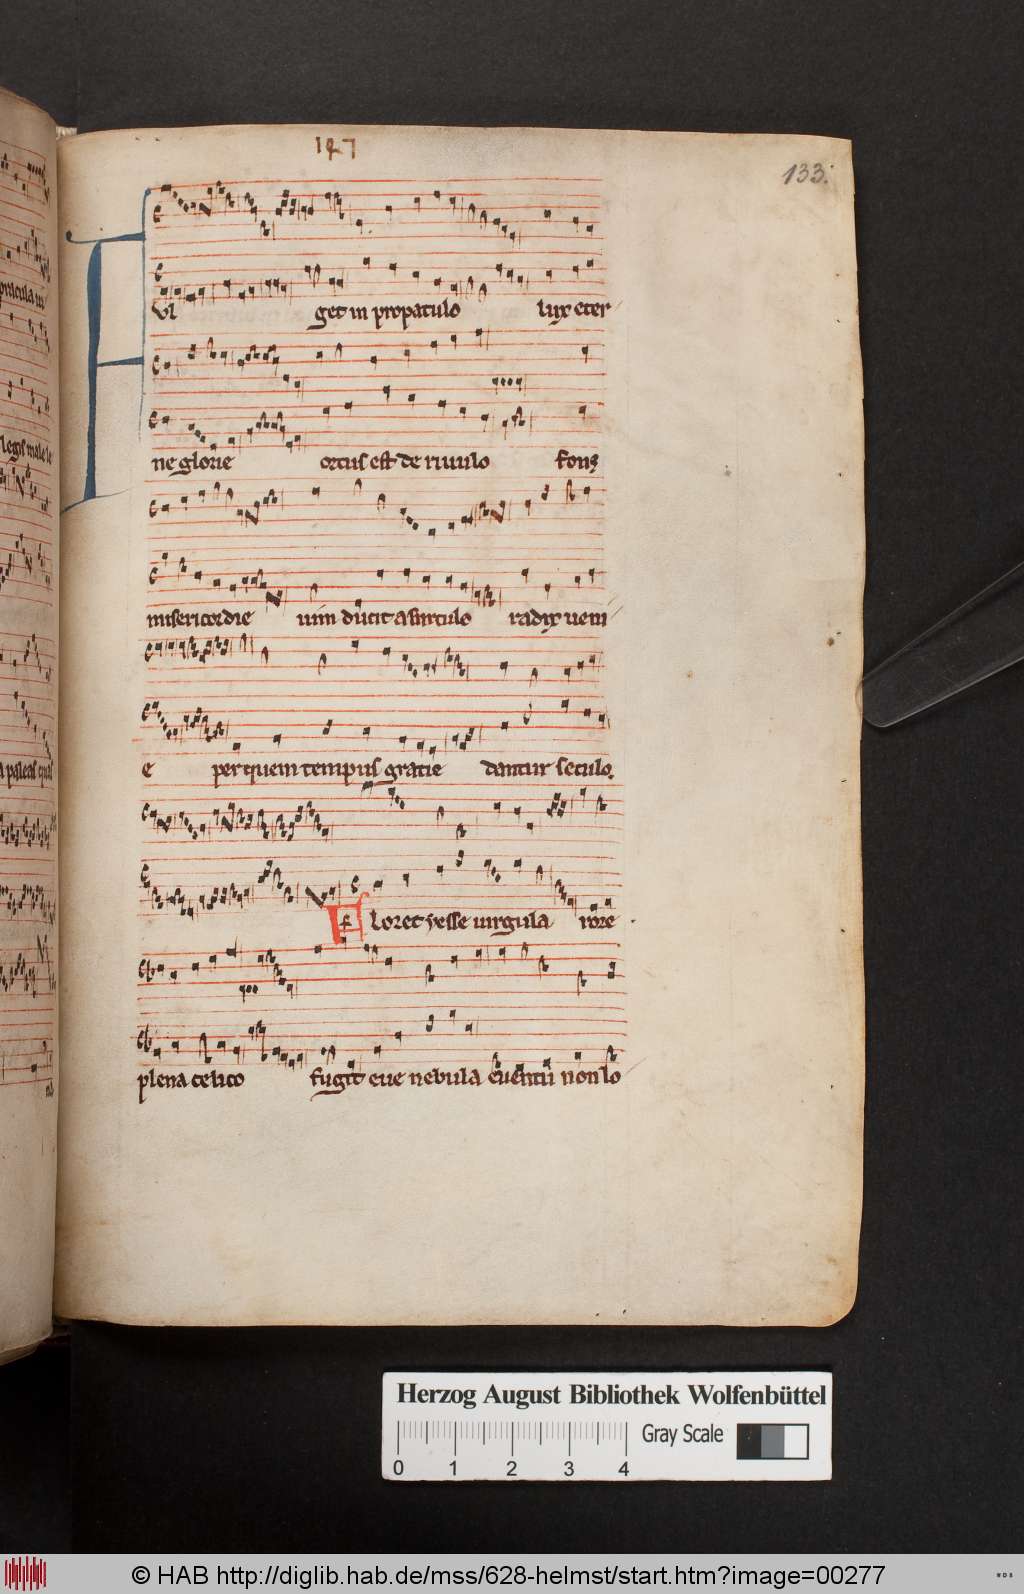 147
133.
Vi get in propatulo lux eter
ne glorie ortus est de riuulo fons
misericordie uim ducit a surculo radix ueni
e per quem tempus gratie dantur seculo.
Floret yesse uirgula rore
plena celico fugit eue nebula euentu non lo
Herzog August Bibliothek Wolfenbüttel
Gray Scale
0 1 2 3 4
© HAB http://diglib.hab.de/mss/628-helmst/start.htm?image=00277